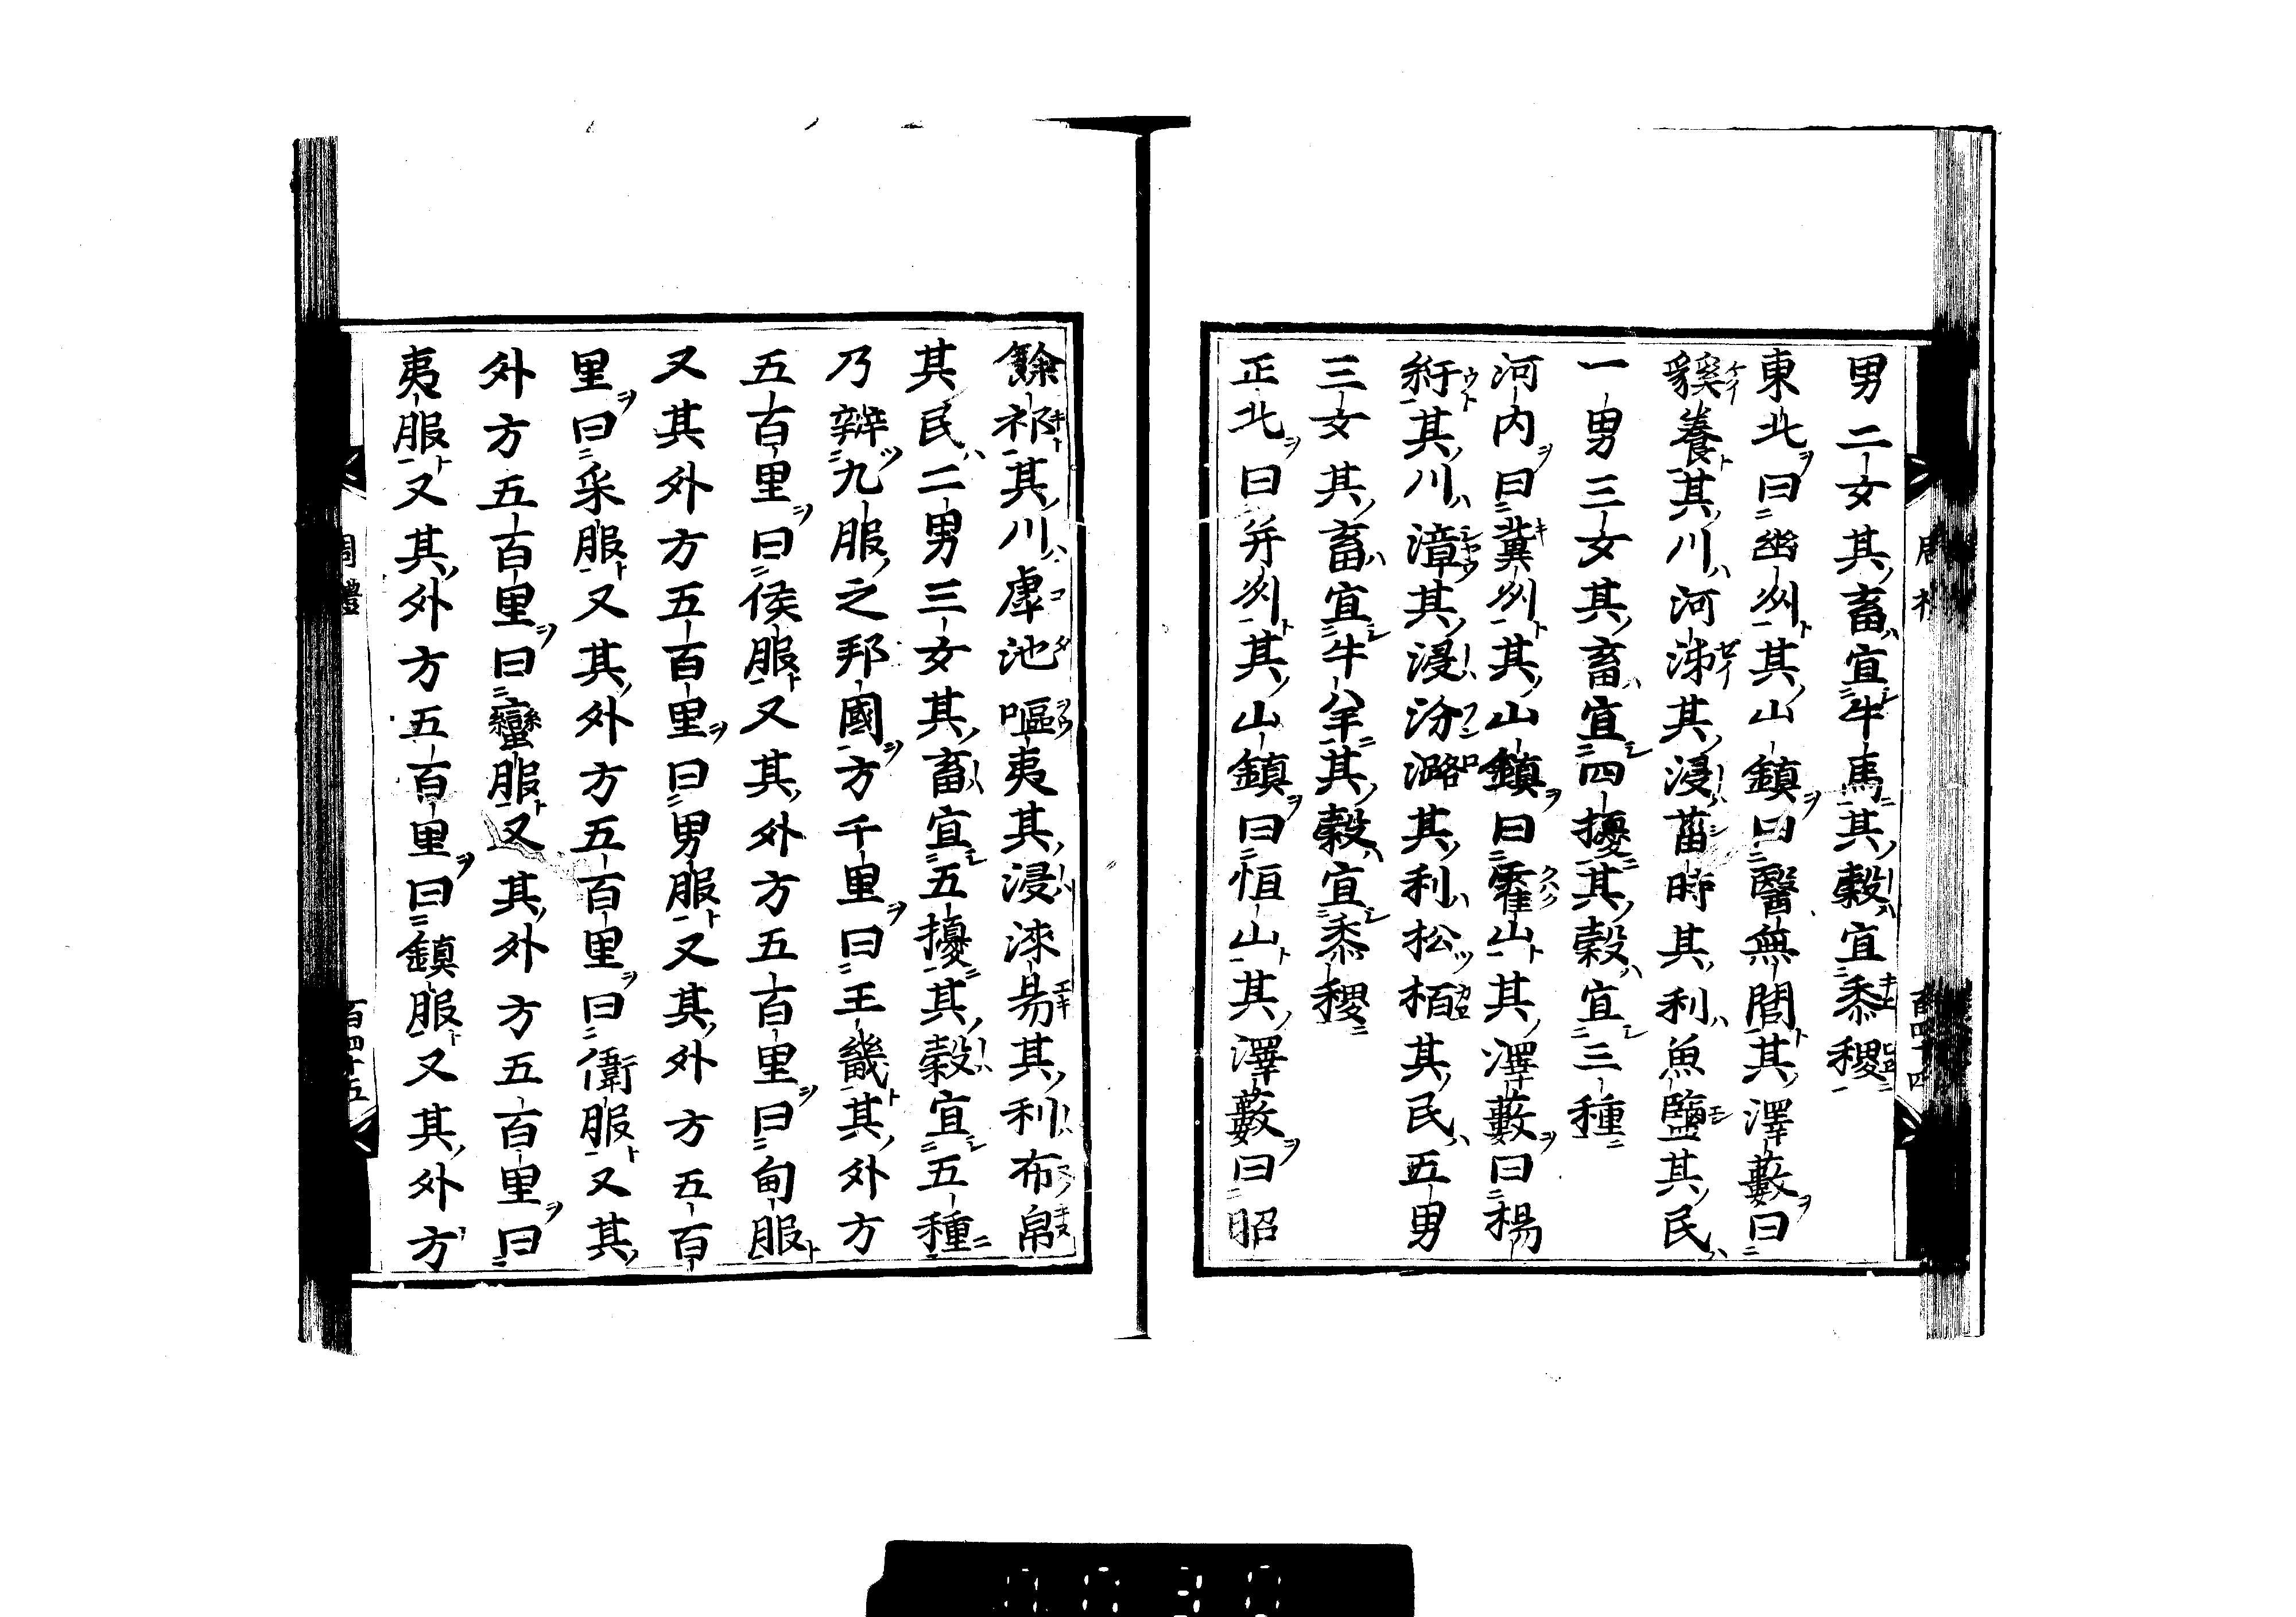 男二女其畜宜牛馬其穀宜黍稷
東北曰幽州其山鎮曰醫無閭其澤藪曰
貕養其川河泲其浸菑時其利魚鹽其民
一男三女其畜宜四擾其穀宜三種
河内曰冀州其山鎮曰霍山其澤藪曰楊
紆其川漳其浸汾潞其利松栢其民五男
三女其畜宜牛羊其穀宜黍稷
正北曰并州其山鎮曰恒山其澤藪曰昭
餘祁其川虖池嘔夷其浸淶易其利布帛
其民二男三女其畜宜五擾其穀宜五種
乃辨九服之邦國方千里曰王畿其外方
五百里曰侯服又其外方五百里曰甸服
又其外方五百里曰男服又其外方五百
里曰采服又其外方五百里曰衛服又其
外方五百里曰蠻服又其外方五百里曰
夷服又其外方五百里曰鎮服又其外方
周禮
百四十五